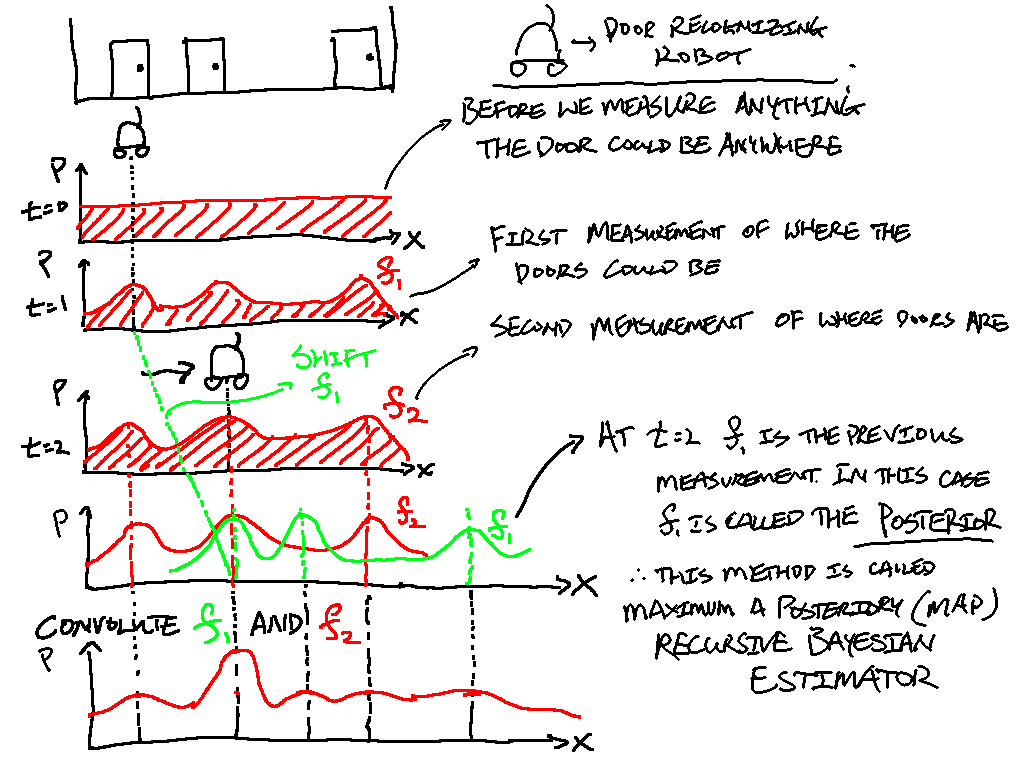 DOOR RECOGNIZING
ROBOT
BEFORE WE MEASURE ANYTHING
THE DOOR COULD BE ANYWHERE
P
t=0
x
FIRST MEASUREMENT OF WHERE THE
DOORS COULD BE
P
f1
t=1
x
SECOND MEASUREMENT OF WHERE DOORS ARE
SHIFT
f1
P
f2
t=2
x
AT t=2 f1 IS THE PREVIOUS
MEASUREMENT. IN THIS CASE
f1 IS CALLED THE POSTERIOR
P
f2
f1
x
∴ THIS METHOD IS CALLED
MAXIMUM A POSTERIORY (MAP)
RECURSIVE BAYESIAN
ESTIMATOR
CONVOLUTE f1 AND f2
P
x